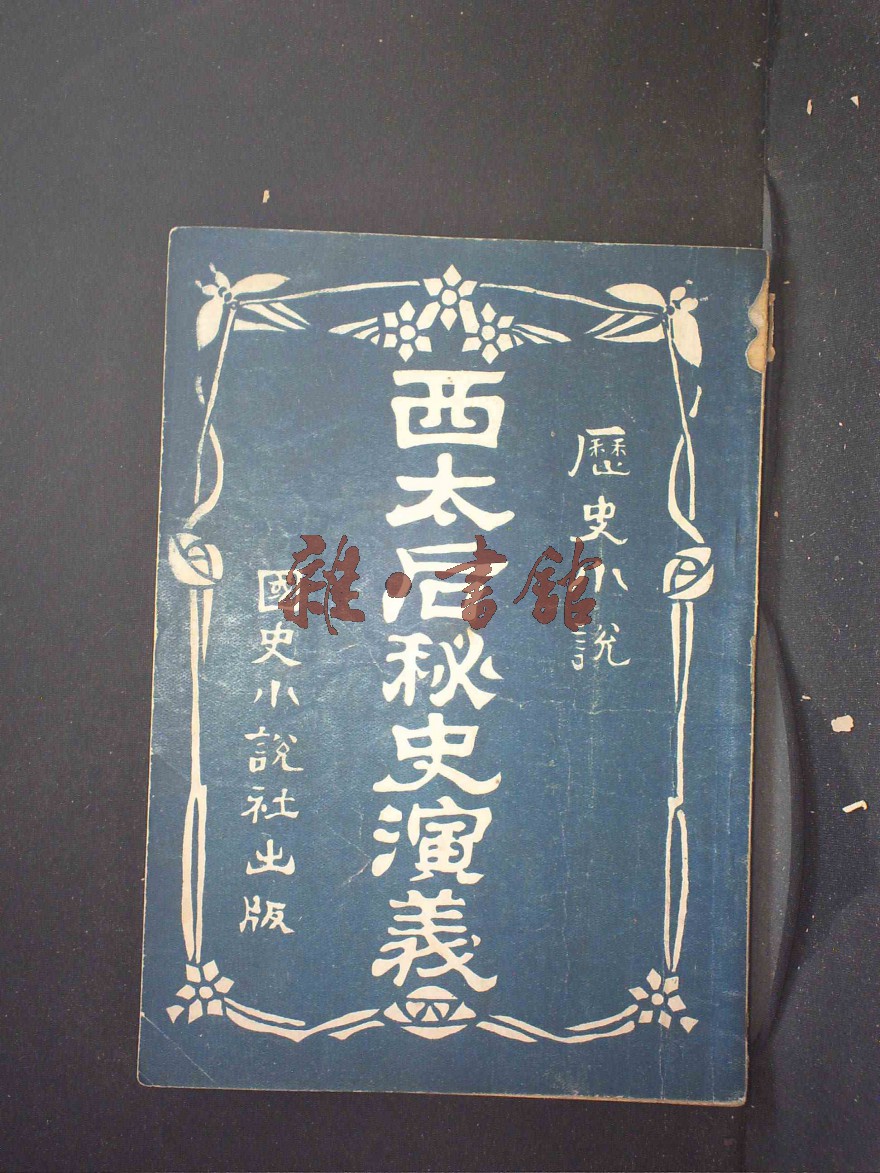 歷史小說
西太后秘史演義
國史小說社出版
雜·書館